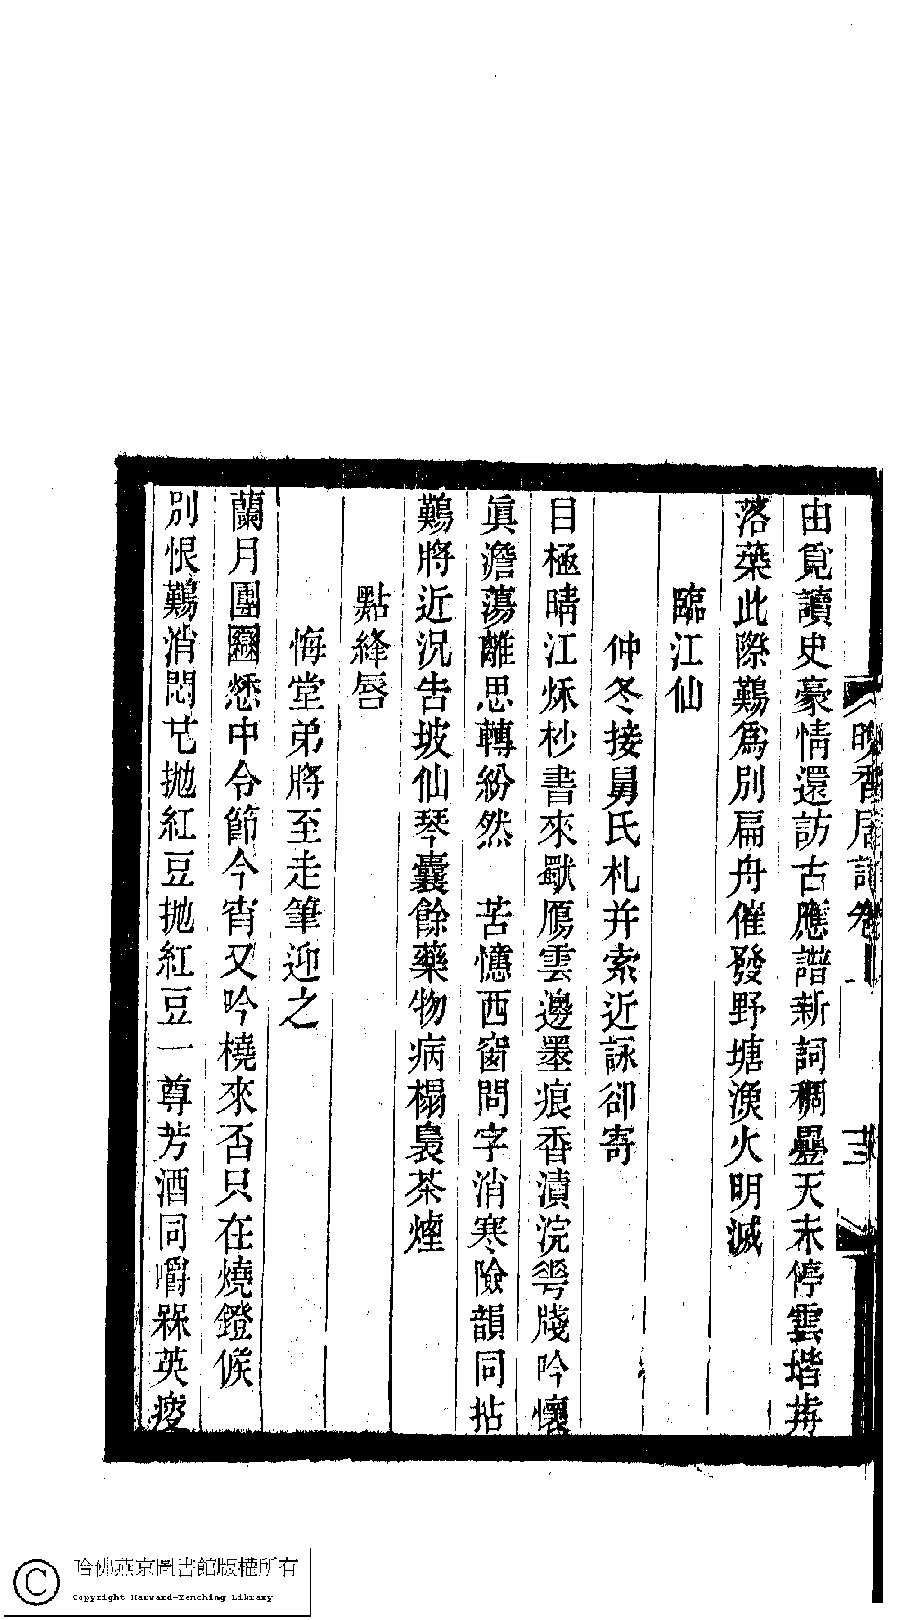 由覓讀史豪情還訪古應譜新詞稠疊天末停雲堦前
落葉此際鷬為別扁舟催發野塘漁火明滅
臨江仙
仲冬接舅氏札并索近詠卻寄
目極晴江秌杪書來歇鴈雲邊墨痕香漬浣花牋吟懷
眞澹蕩離思轉紛然　苦憶西窗問字消寒險韻同拈
鷬將近況告坡仙琴囊餘藥物病榻裊茶煙
點絳唇
悔堂弟將至走筆迎之
蘭月團圝愁中令節今宵又吟橈來否只在燒鐙候
別恨鷬消悶芒拋紅豆拋紅豆一尊芳酒同嚼槑英瘦
晚香居詞卷
哈佛燕京圖書館版權所有
Copyright Harvard-Yenching Library